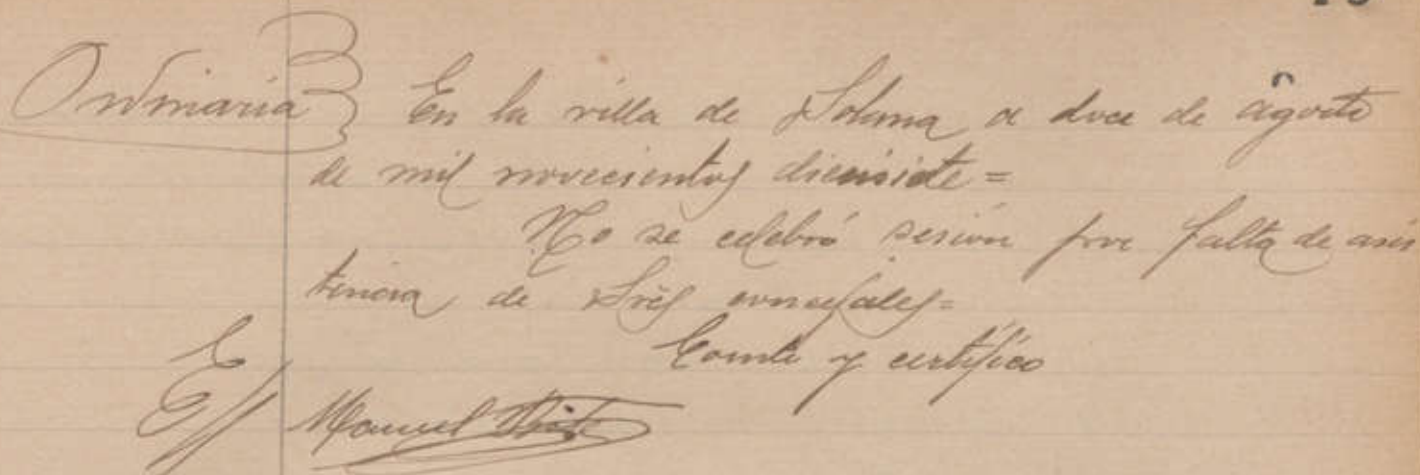 Ordinaria En la villa de Solana a doce de agosto
de mil novecientos diecisiete =
No se celebró sesión por falta de asis
tencia de Srés concejales =
Conste y certifico
Manuel